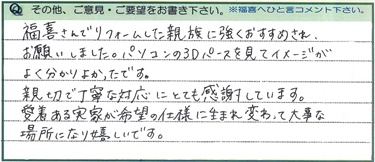 Q その他、ご意見・ご要望をお書き下さい。※福喜へひと言コメント下さい。
福喜さんでリフォームした親族に強くおすすめされ、
お願いしました。パソコンの3Dパースを見てイメージが
よく分かりよかったです。
親切で丁寧な対応にとても感謝しています。
愛着ある実家が希望の仕様に生まれ変わって大事な
場所になり嬉しいです。